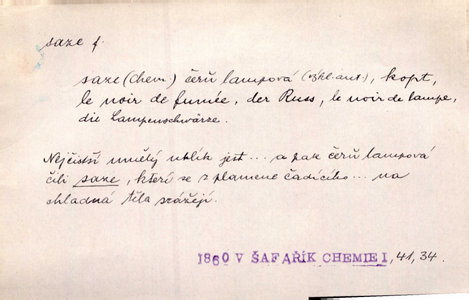 saze f.
saze (chem.) čerň lampová (vykl. aut.), kopt,
le noir de fumée, der Russ, le noir de lampe,
die Lampenschwärze.
Nejčistší umělý uhlík jest ... a pak čerň lampová
čili saze, kteří se z plamene čadícího ... na
chladná těla srážejí.
1860 V ŠAFAŘÍK CHEMIE I, 41, 34.